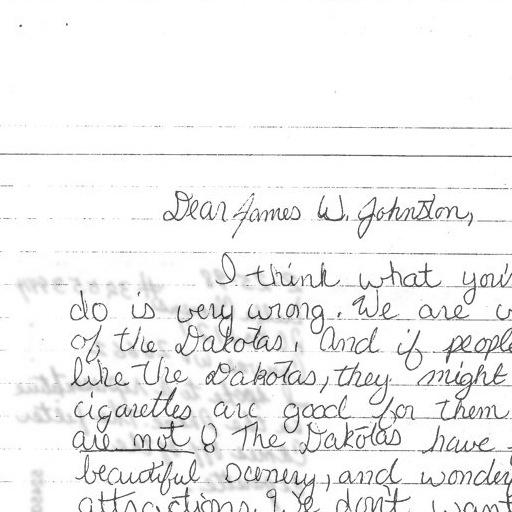 Dear James W. Johnston,
I think what you'r
do is very wrong. We are
of the Dakotas. And if people
like the Dakotas, they might
cigarettes are good for them
are not! The Dakotas have
beautiful scenery, and wonder
attractions. We don't want